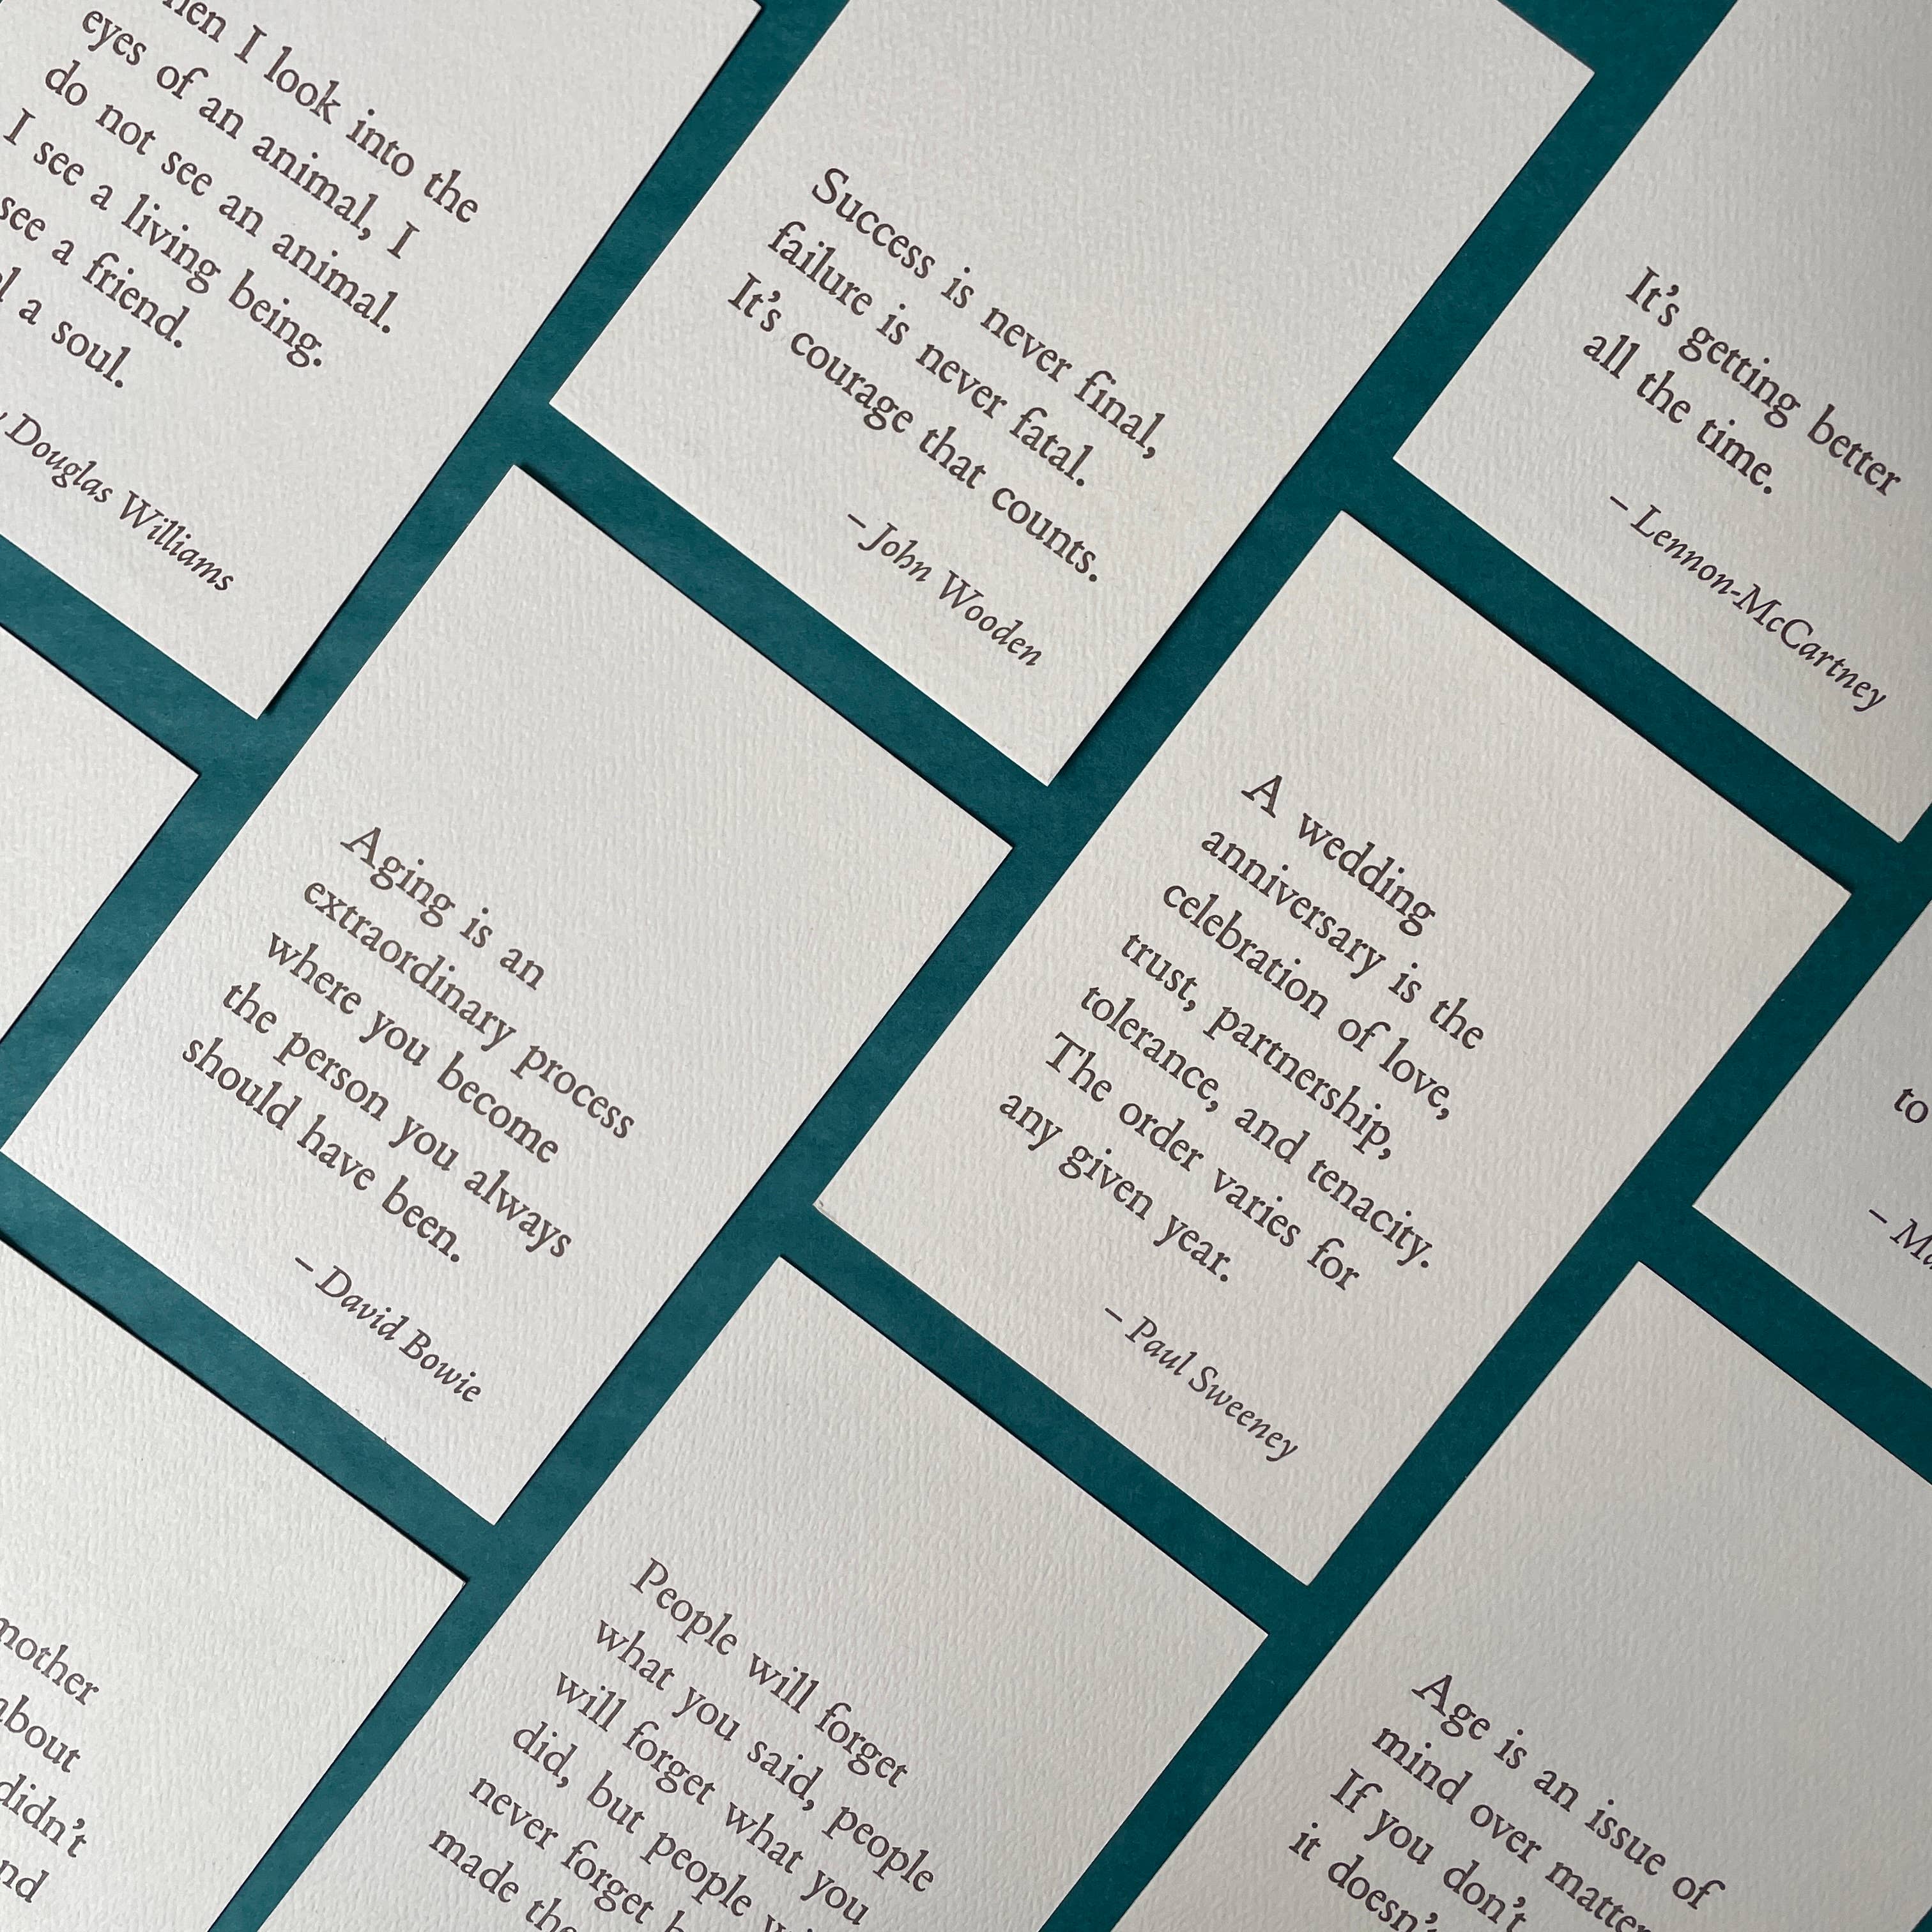 I look into the
eyes of an animal, I
do not see an animal.
I see a living being.
see a friend.
a soul.
Douglas Williams
Success is never final,
failure is never fatal.
It's courage that counts.
– John Wooden
It's getting better
all the time.
– Lennon-McCartney
Aging is an
extraordinary process
where you become
the person you always
should have been.
– David Bowie
A wedding
anniversary is the
celebration of love,
trust, partnership,
tolerance, and tenacity.
The order varies for
any given year.
– Paul Sweeney
to
mother
about
didn't
People will forget
what you said, people
will forget what you
did, but people
never forget
made
Age is an issue of
mind over matter
If you don't
it